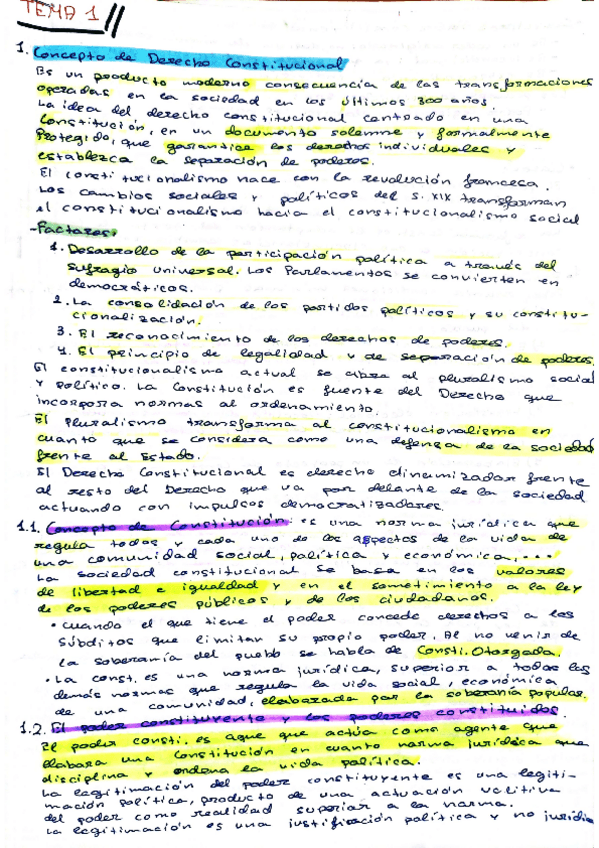 TEMA 1
1. Concepto de Derecho Constitucional
Es un producto moderno consecuencia de las transformaciones
operadas en la sociedad en los últimos 300 años.
La idea del derecho constitucional centrado en una
Constitución, en un documento solemne y formalmente
Protegido, que garantice los derechos individuales y
establezca la separación de poderes.
El constitucionalismo nace con la revolución francesa.
Los cambios sociales y políticos del s. XIX transforman
el constitucionalismo hacia el constitucionalismo social
-Factores:
1. Desarrollo de la participación política a través del
sufragio universal. Los Parlamentos se convierten en
democráticos.
2. La consolidación de los partidos políticos y su constitu-
cionalización.
3. El reconocimiento de los derechos de poderes.
4. El principio de legalidad y de separación de poderes.
El constitucionalismo actual se abre al pluralismo social
y político. La Constitución es fuente del Derecho que
incorpora normas al ordenamiento.
El pluralismo transforma al constitucionalismo en
cuanto que se considera como una defensa de la sociedad
frente al Estado.
El Derecho Constitucional es derecho dinamizador frente
al resto del Derecho que va por delante de la sociedad
actuando con impulsos democratizadores.
1.1. Concepto de Constitución: es una norma jurídica que
regula todos y cada uno de los aspectos de la vida de
una comunidad social, política y económica, ...
La sociedad constitucional se basa en los valores
de libertad e igualdad y en el sometimiento a la ley
de los poderes públicos y de los ciudadanos.
• Cuando el que tiene el poder concede derechos a los
súbditos que limitan su propio poder. Al no venir de
la soberanía del pueblo se habla de Consti. Otorgada.
• La const. es una norma jurídica, superior a todas las
demás normas que regula la vida social, económica
de una comunidad, elaborada por la soberanía popular.
1.2. El poder constituyente y los poderes constituidos.
El poder consti. es aque que actúa como agente que
elabora una Constitución en cuanto norma jurídica que
disciplina y ordena la vida política.
La legitimación del poder constituyente es una legiti-
mación política, producto de una actuación volitiva
del poder como realidad superior a la norma.
La legitimación es una justificación política y no jurídica